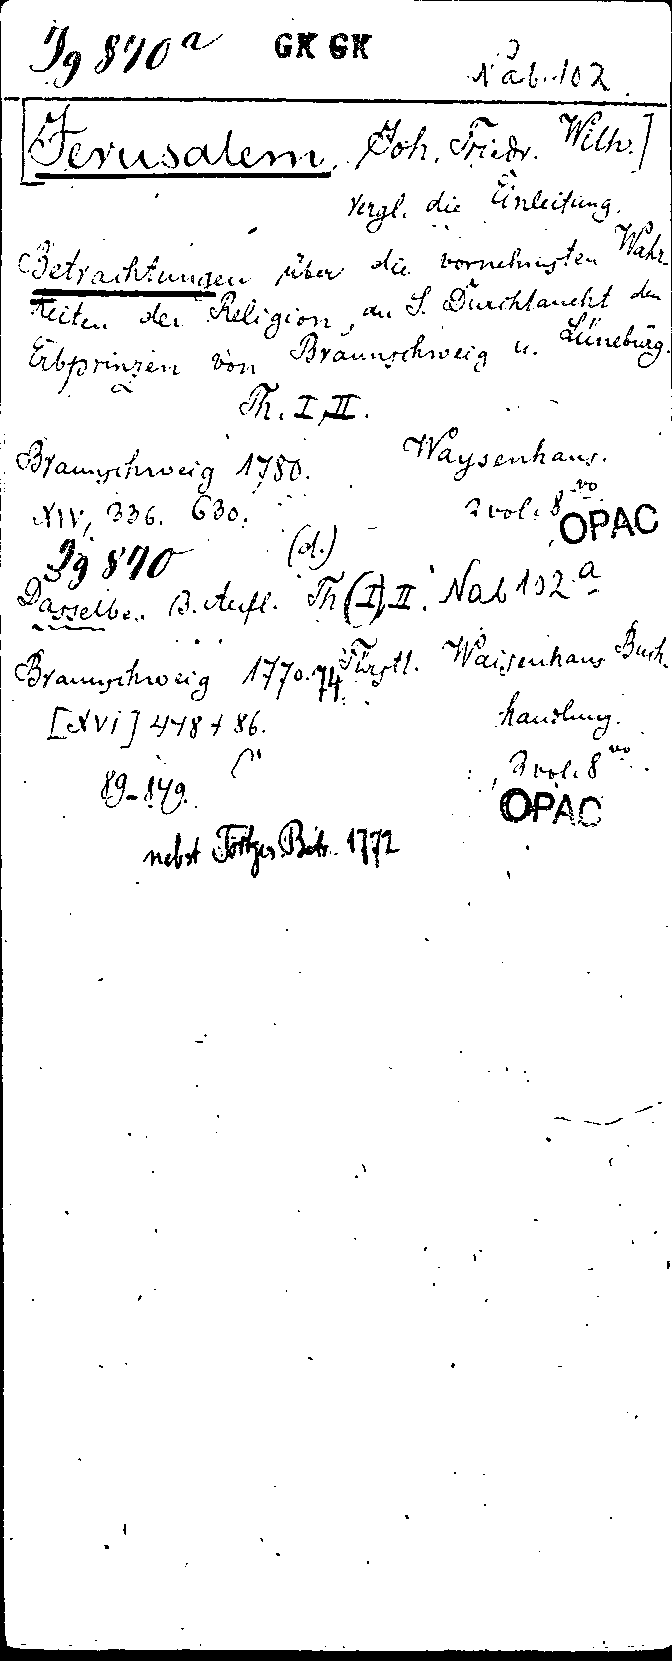 Ig 870 a GK GK Nab. 102.
[Jerusalem, Joh. Friedr. Wilh.]
vergl. die Einleitung.
Betrachtungen über die vornehmsten Wahr
heiten der Religion, an S. Durchlaucht den
Erbprinzen von Braunschweig u. Lüneburg.
Th. I, II.
Braunschweig 1780. Waysenhaus.
XIV, 336. 630. 2 vol. 8vo
OPAC
Ig 870 (d.)
Dasselbe. 3. Aufl. Th (I), II. Nab 102 a
Braunschweig 1770. 74. Fürstl. Waisenhaus Buch
handlung.
[XVI] 478 + 86.
89-849. 2 vol. 8vo
OPAC
nebst Betr. 1772